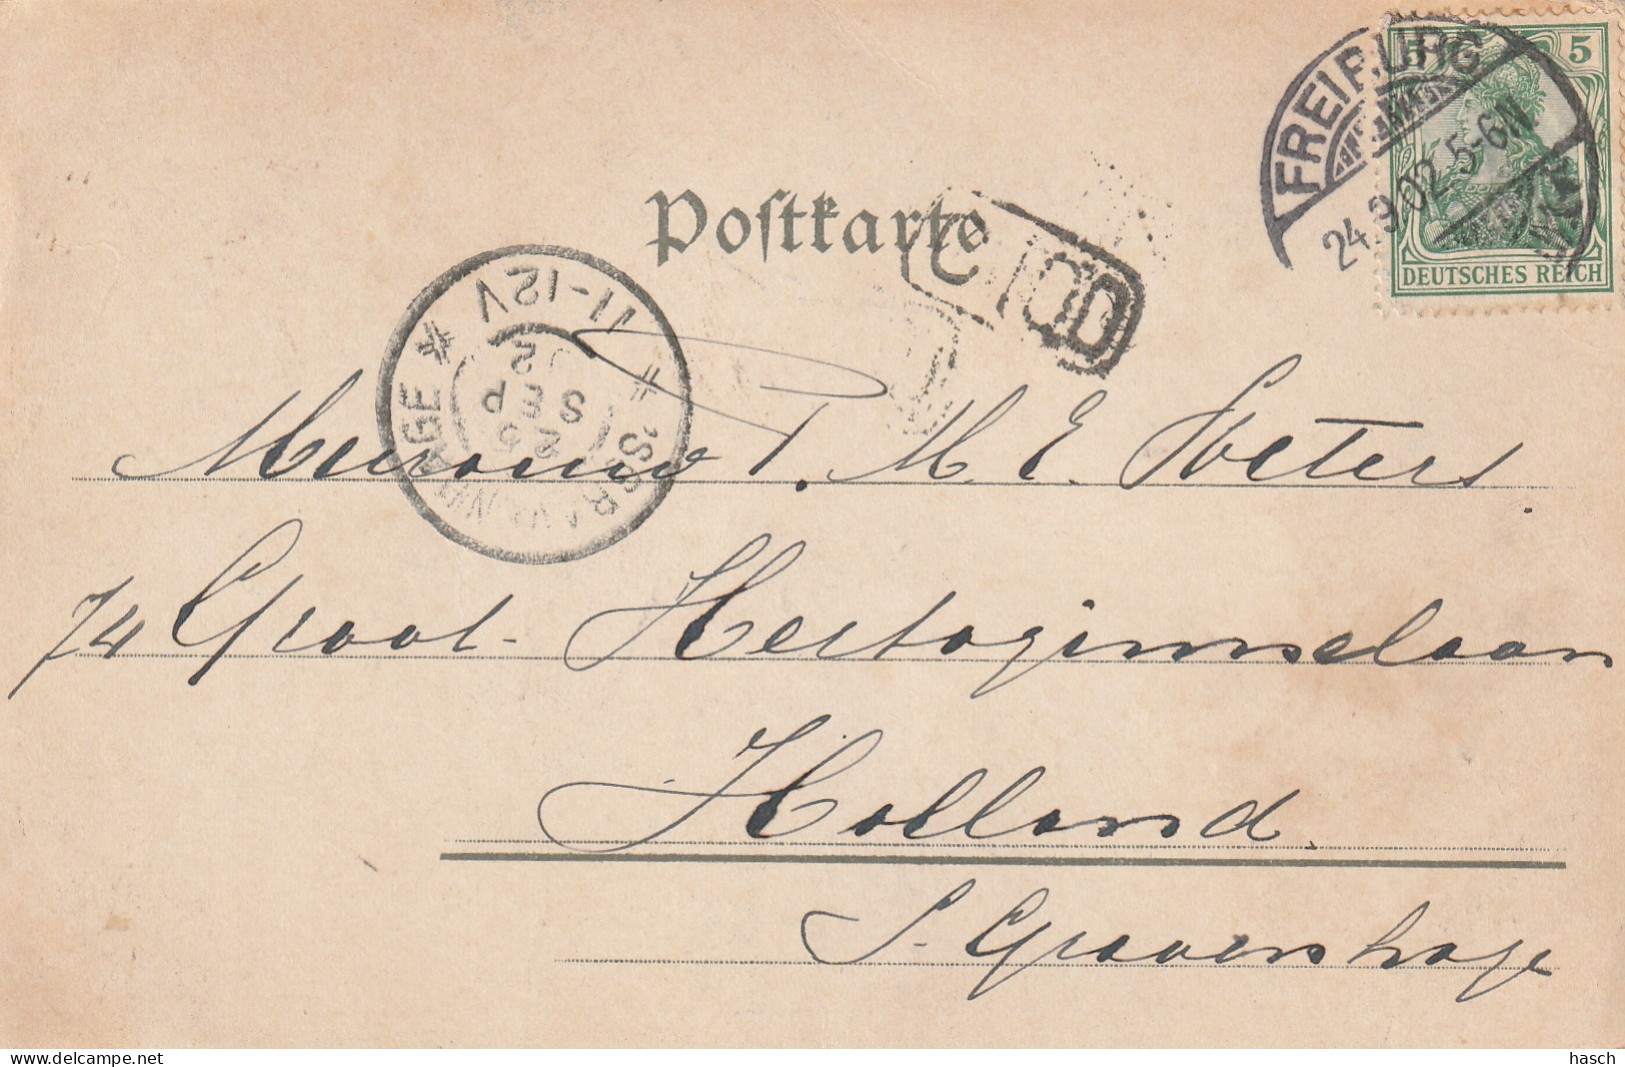 Postkarte
FREIBURG
24.9.02.5-6N.
5 5
DEUTSCHES REICH
'SGRAVENHAGE
11-12V
25
SEP
02
Mevrouw P. M. E. Soeters.
74 Groot Hertoginnelaan
Holland.
S. Gravenhage
www.delcampe.net
hasch